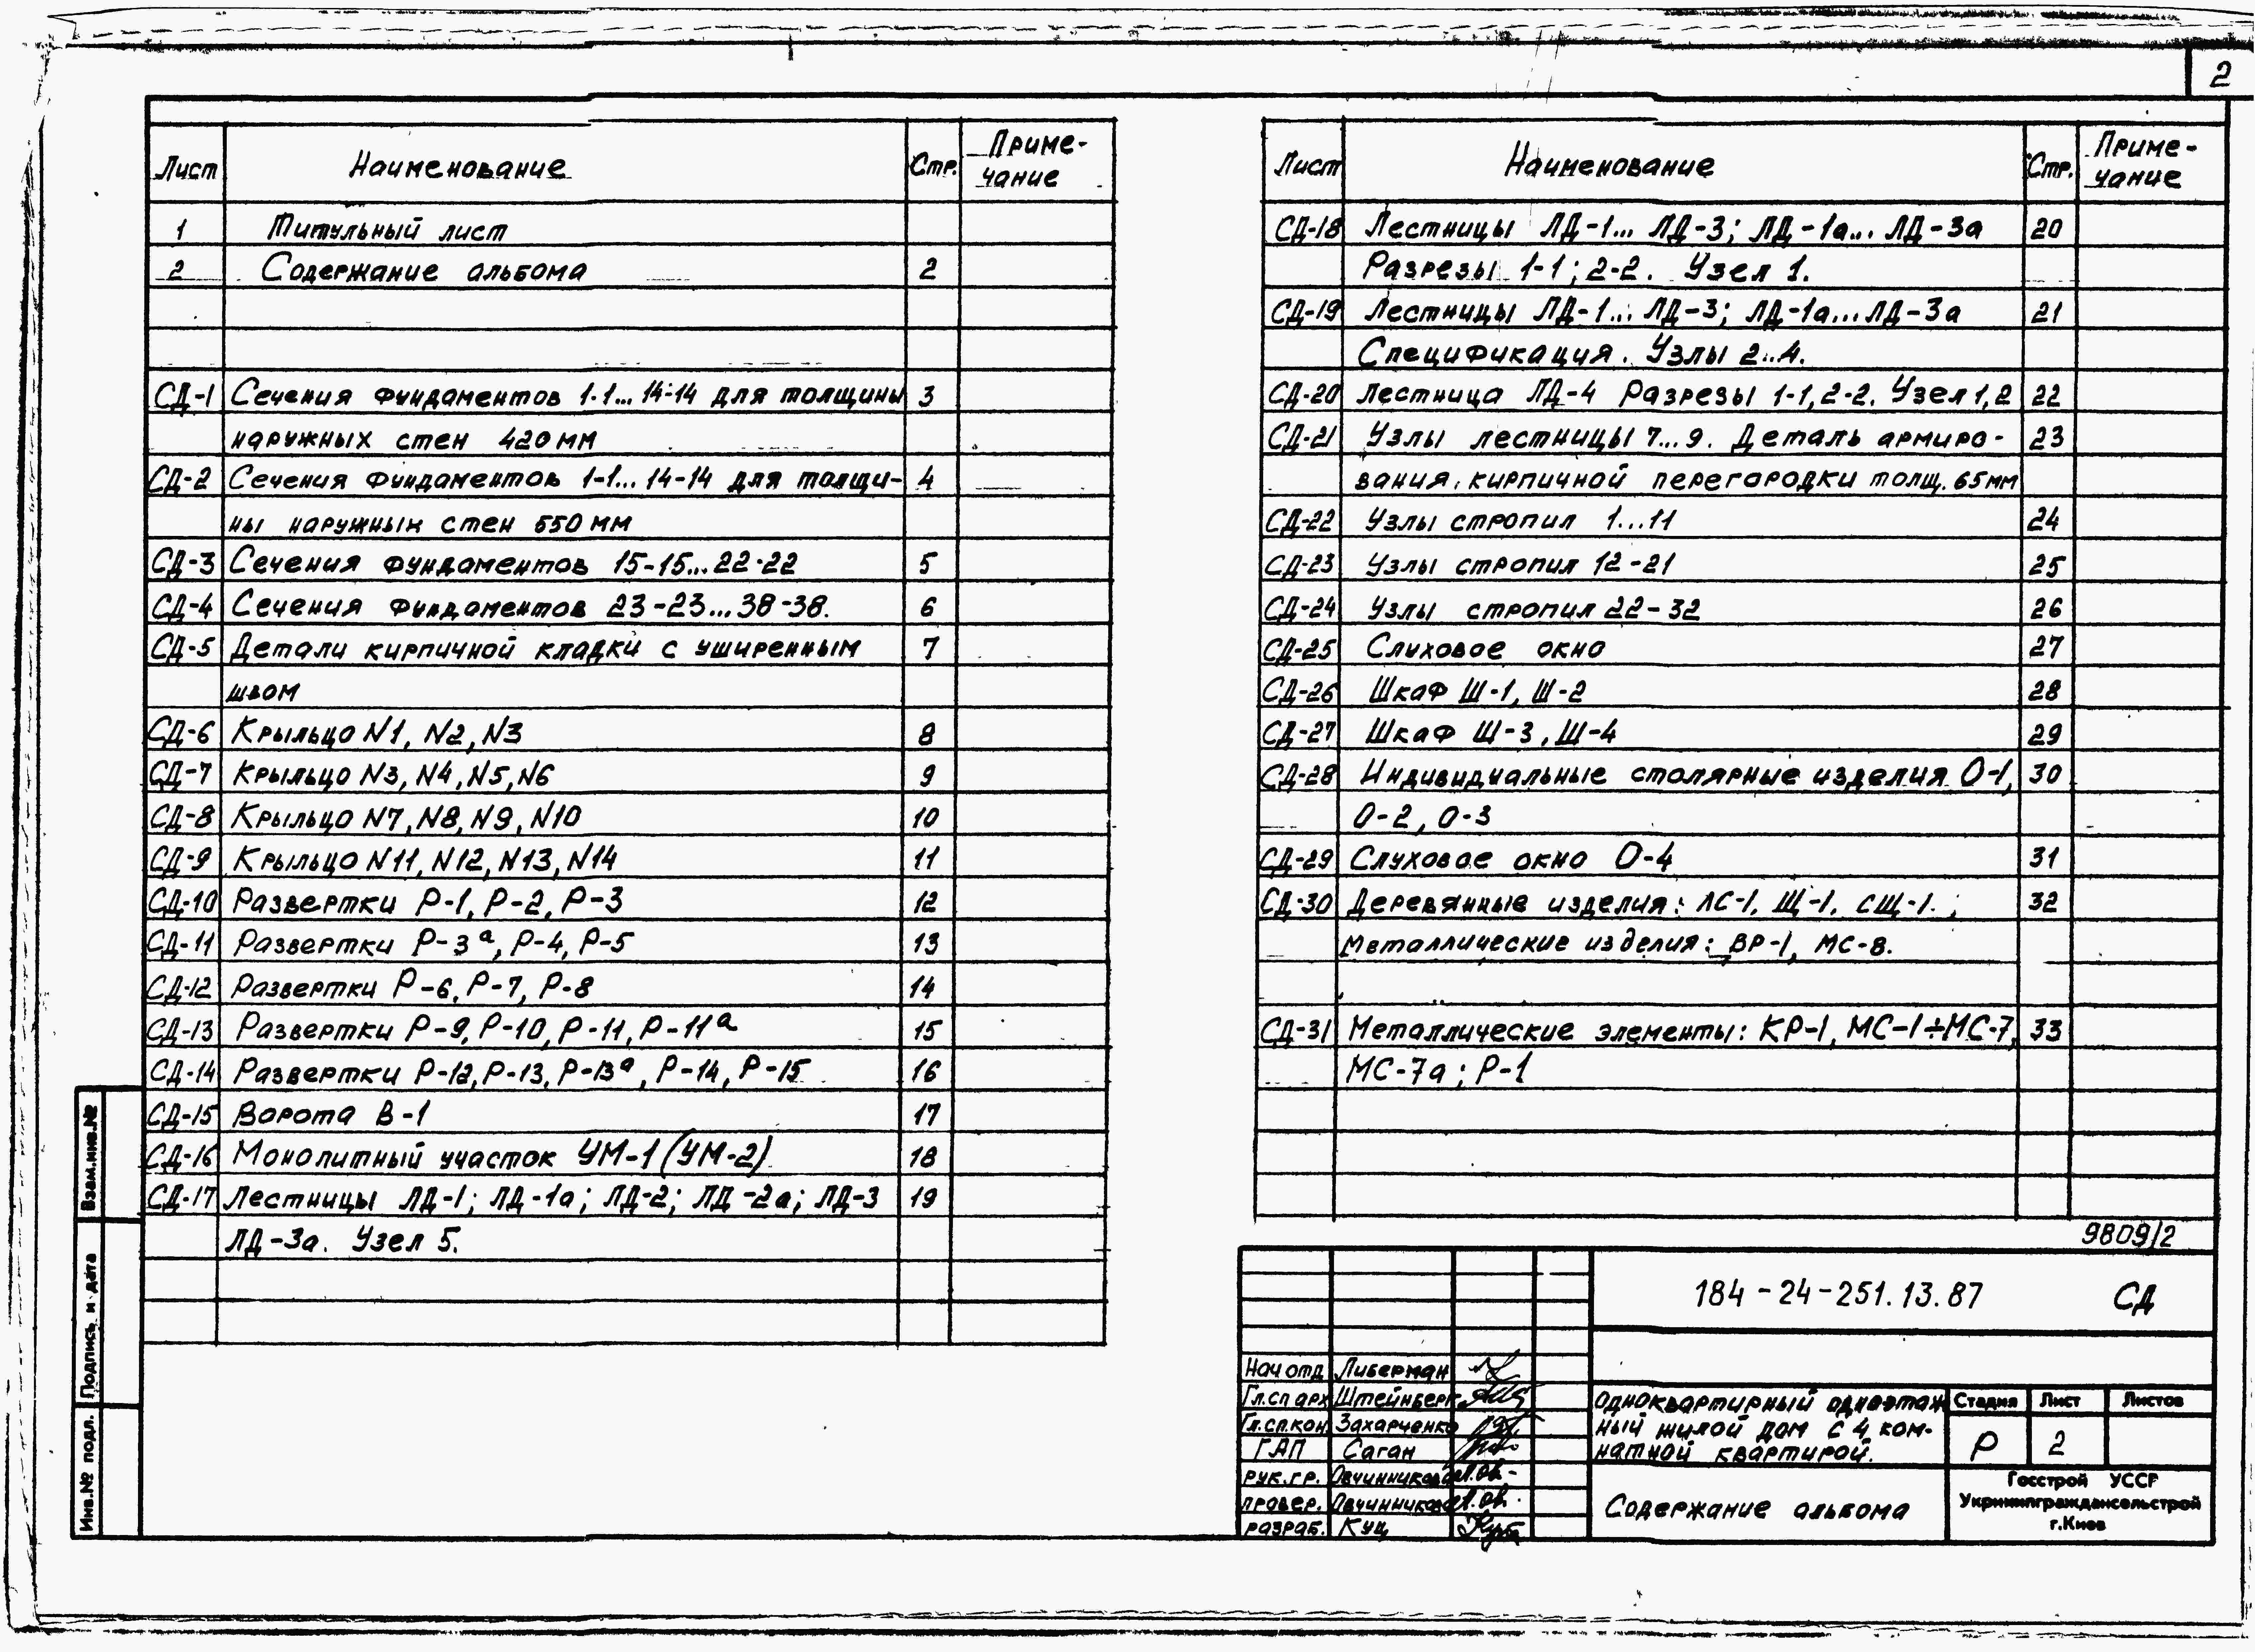 2
Лист Наименование Стр. Приме-
чание
1 Титульный лист
2 Содержание альбома 2
СД-1 Сечения фундаментов 1-1... 14-14 для толщины 3
наружных стен 420 мм
СД-2 Сечения фундаментов 1-1... 14-14 для толщи- 4
ны наружных стен 550 мм
СД-3 Сечения фундаментов 15-15...22-22 5
СД-4 Сечения фундаментов 23-23...38-38. 6
СД-5 Детали кирпичной кладки с уширенным 7
швом
СД-6 Крыльцо N1, N2, N3 8
СД-7 Крыльцо N3, N4, N5, N6 9
СД-8 Крыльцо N7, N8, N9, N10 10
СД-9 Крыльцо N11, N12, N13, N14 11
СД-10 Развертки Р-1, Р-2, Р-3 12
СД-11 Развертки Р-3а, Р-4, Р-5 13
СД-12 Развертки Р-6, Р-7, Р-8 14
СД-13 Развертки Р-9, Р-10, Р-11, Р-11а 15
СД-14 Развертки Р-12, Р-13, Р-13а, Р-14, Р-15 16
СД-15 Ворота В-1 17
СД-16 Монолитный участок УМ-1 (УМ-2) 18
СД-17 Лестницы ЛД-1; ЛД-1а; ЛД-2; ЛД-2а; ЛД-3 19
ЛД-3а. Узел 5.
Лист Наименование Стр. Приме-
чание
СД-18 Лестницы ЛД-1... ЛД-3; ЛД-1а... ЛД-3а 20
Разрезы 1-1; 2-2. Узел 1.
СД-19 Лестницы ЛД-1... ЛД-3; ЛД-1а...ЛД-3а 21
Спецификация. Узлы 2..4.
СД-20 Лестница ЛД-4 Разрезы 1-1, 2-2. Узел 1, 2 22
СД-21 Узлы лестницы 7...9. Деталь армиро- 23
вания кирпичной перегородки толщ. 65 мм
СД-22 Узлы стропил 1...11 24
СД-23 Узлы стропил 12-21 25
СД-24 Узлы стропил 22-32 26
СД-25 Слуховое окно 27
СД-26 Шкаф Ш-1, Ш-2 28
СД-27 Шкаф Ш-3, Ш-4 29
СД-28 Индивидуальные столярные изделия О-1, 30
О-2, О-3
СД-29 Слуховое окно О-4 31
СД-30 Деревянные изделия: ЛС-1, Щ-1, СЩ-1. ; 32
Металлические изделия: ВР-1, МС-8.
СД-31 Металлические элементы: КР-1, МС-1÷МС-7, 33
МС-7а; Р-1
9809/2
184-24-251.13.87 СД
Нач отд Либерман
Гл.сп арх Штейнберг
Гл.сп.кон. Захарченко
ГАП Саган
рук.гр. Овчинникова
провер. Овчинникова
разраб. Куц
Одноквартирный одноэтаж
ный жилой дом с 4 ком-
натной квартирой.
Стадия Лист Листов
Р 2
Содержание альбома
Госстрой УССР
Укрниипграждансельстрой
г.Киев
Взам.инв.№
Подпись и дата
Инв.№ подл.